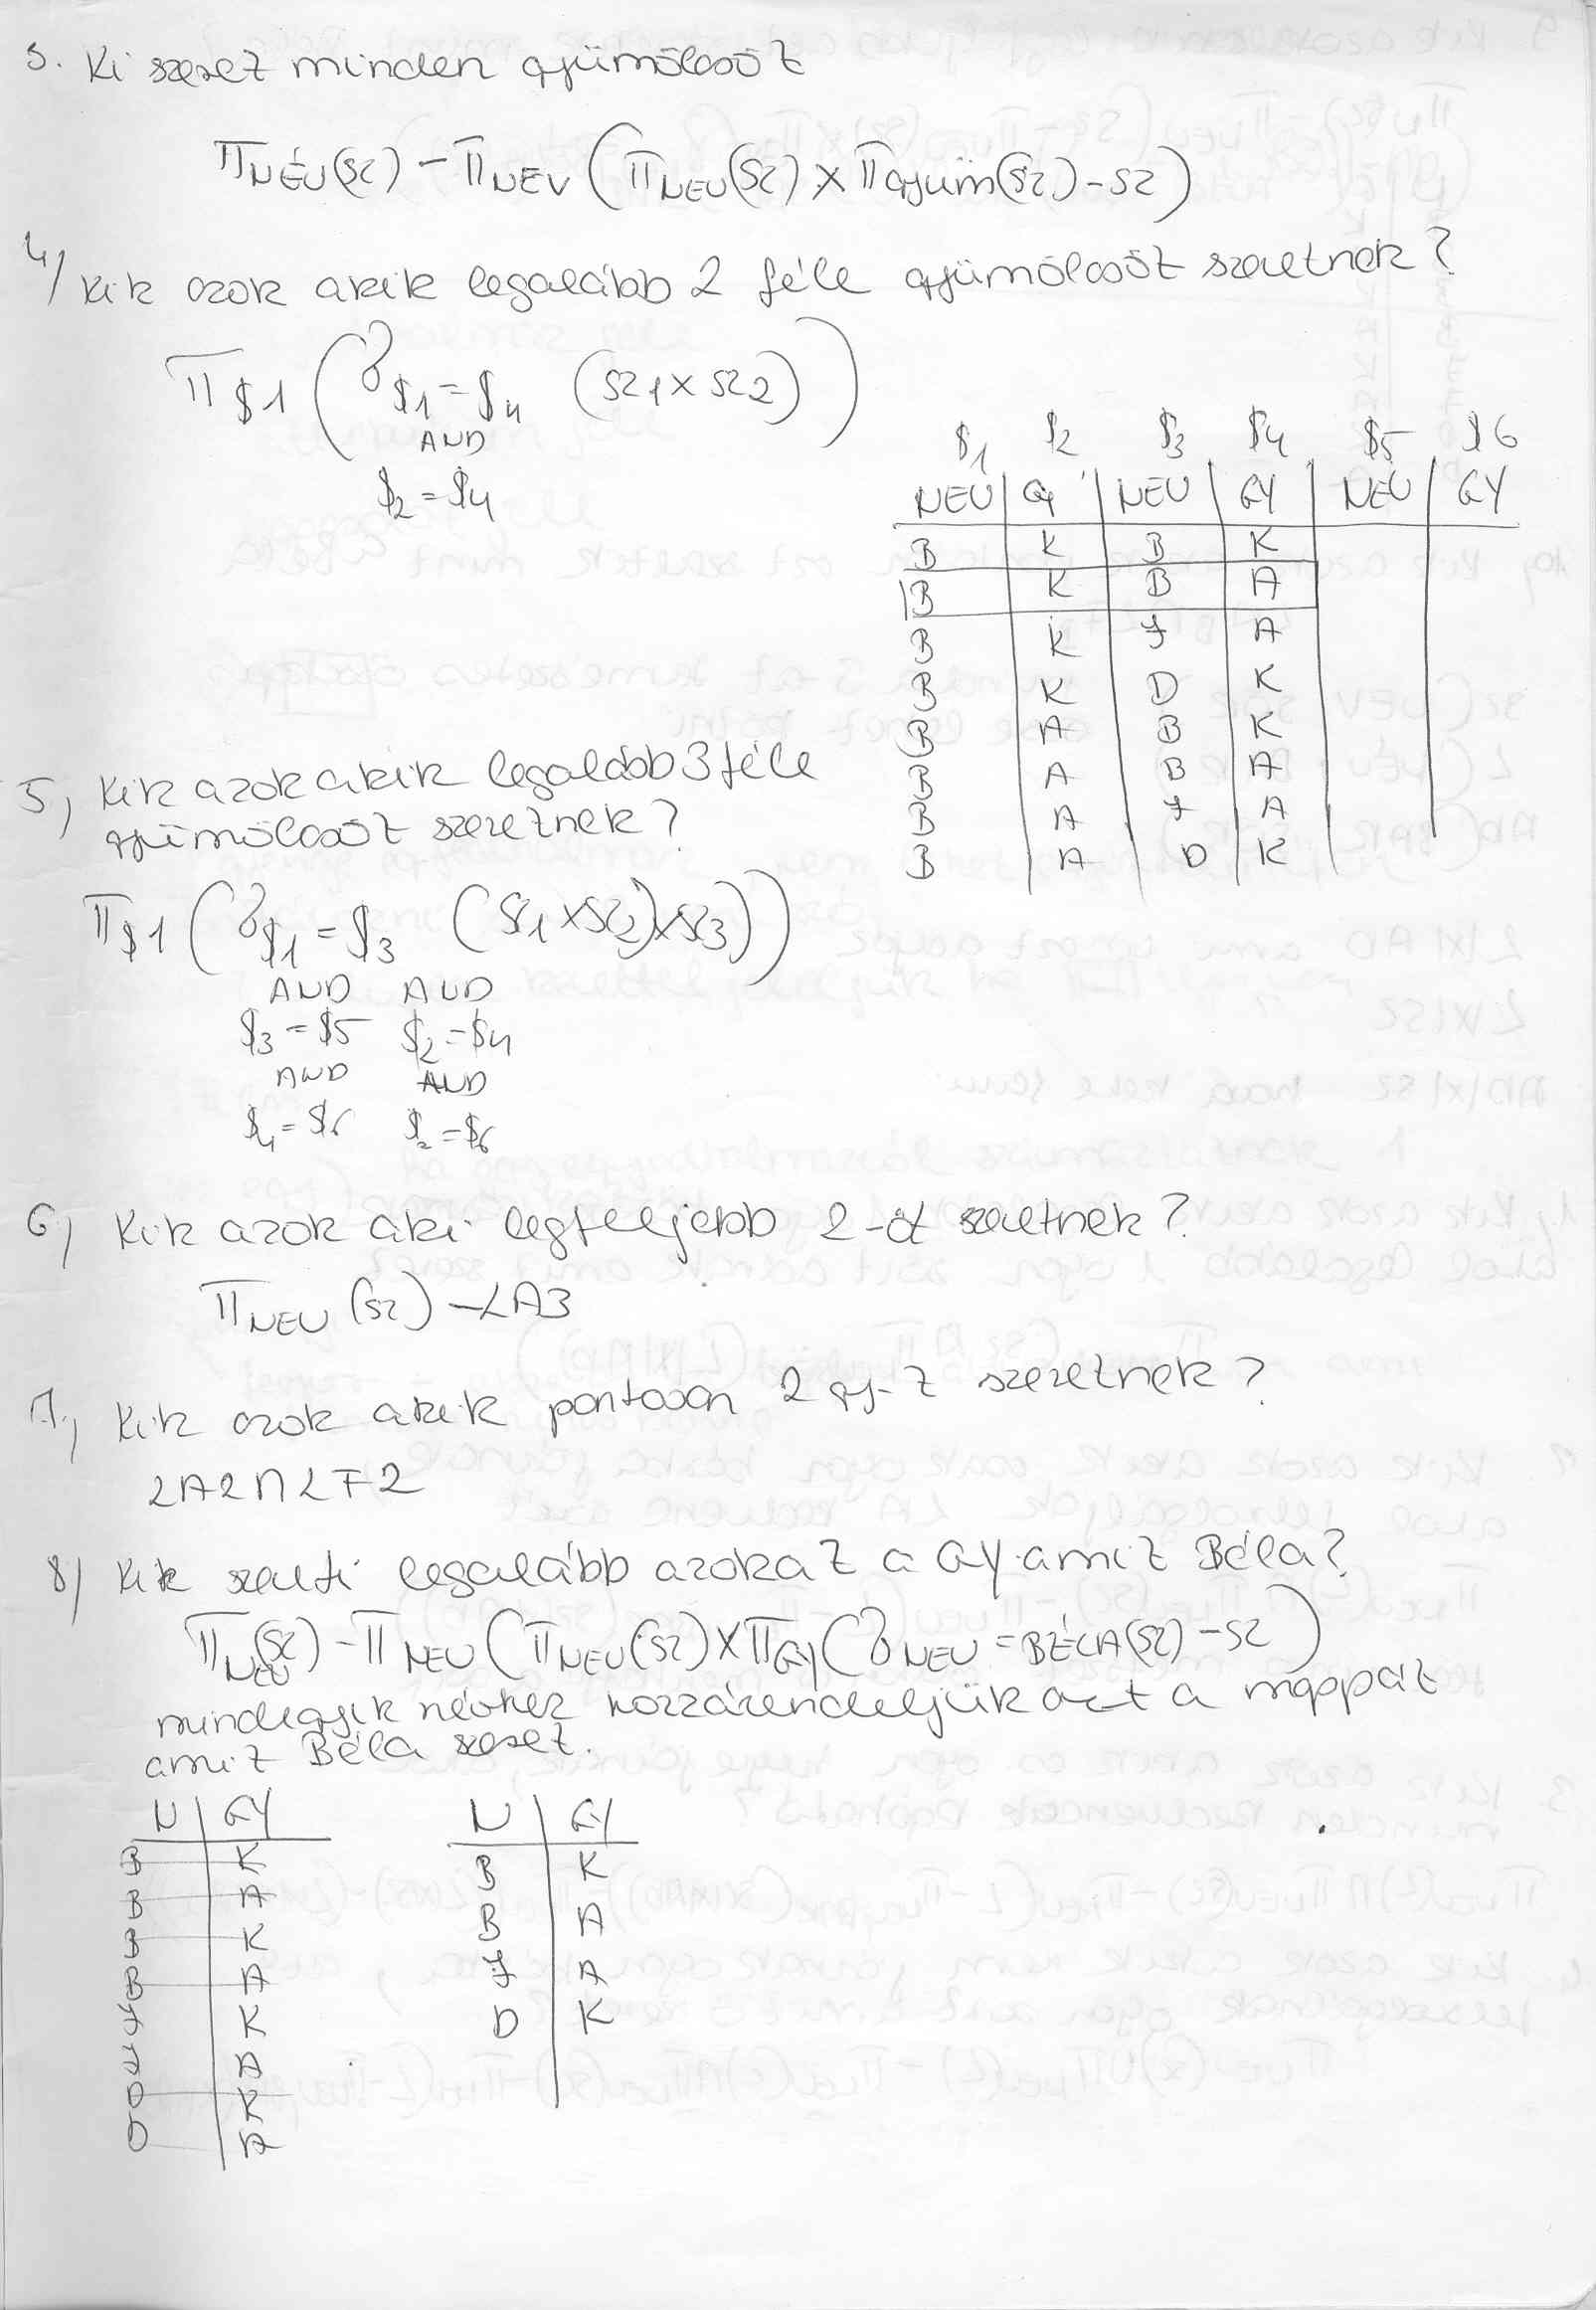 3. Ki szeret minden gyümölcsöt
ΠNÉV(SZ) − ΠNEV (ΠNEV(SZ) × Πgyüm(SZ) − SZ)
4/ Kik azok akik legalább 2 féle gyümölcsöt szeretnek?
Π$1 (σ$1=$4 (SZ1 × SZ2))
AND
$2 = $4
$1 $2 $3 $4 $5 $6
NÉV GY NEV GY NÉV GY
B K B K
B K B A
B K J A
B K D K
B A B K
B A B A
B A J A
B A D K
5, Kik azok akik legalább 3 féle
gyümölcsöt szeretnek?
Π$1 (σ$1=$3 (SZ1 × SZ2) × SZ3))
AND AND
$3 = $5 $2 = $4
AND AND
$4 = $6 $2 = $6
6, Kik azok aki legfeljebb 2-őt szeretnek?
ΠNEV (SZ) − LA3
7, Kik azok akik pontosan 2 gy-t szeretnek?
LA2 ∩ LF2
8/ Kik szereti legalább azokat a GY amit Béla?
ΠNEV(SZ) − ΠNEV (ΠNEV(SZ) × ΠGY (σNEV = BÉLA(SZ) − SZ)
mindegyik névhez hozzárendeljük azt a mappát
amit Béla szeret.
N GY
B K
B A
B K
B A
J K
J A
D K
D A
N GY
B K
B A
J A
D K